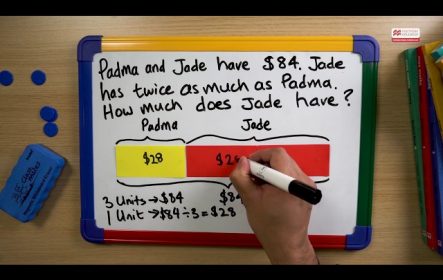 Padma and Jade have $84. Jade
has twice as much as Padma.
How much does Jade have?
Padma Jade
$28 $28
3 Units → $84 $84
1 Unit → $84 ÷ 3 = $28